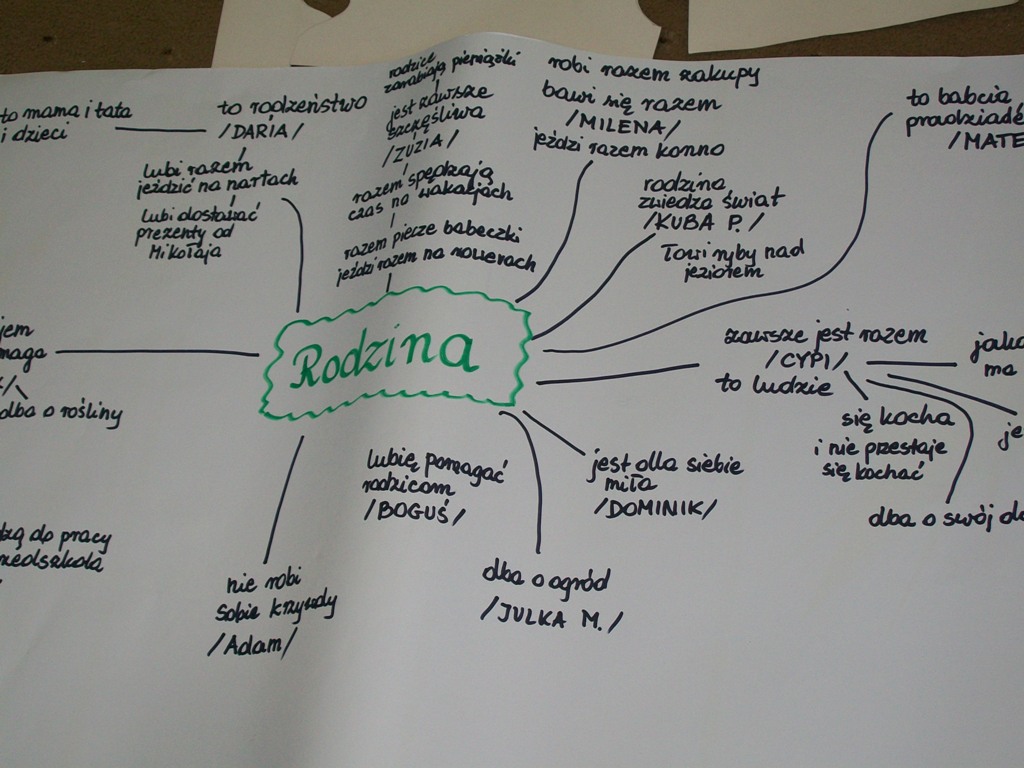 to mama i tata
i dzieci
to rodzeństwo
/DARIA/
lubi razem
jeździć na nartach
lubi dostawać
prezenty od
Mikołaja
rodzice
zarabiają pieniążki
jest zawsze
szczęśliwa
/ZUZIA/
razem spędzają
czas na wakacjach
razem piecze babeczki
jeździ razem na rowerach
robi razem zakupy
bawi się razem
/MILENA/
jeździ razem konno
rodzina
zwiedza świat
/KUBA P./
łowi ryby nad
jeziorem
to babcia
pradziade
/MATE
Rodzina
zawsze jest razem
/CYPI/
to ludzie
ma
się kocha
i nie przestaje
się kochać
dba o swój
dba o rośliny
do pracy
lubię pomagać
rodzicom
/BOGUŚ/
jest dla siebie
miła
/DOMINIK/
dba o ogród
/JULKA M./
nie robi
sobie krzywdy
/Adam/